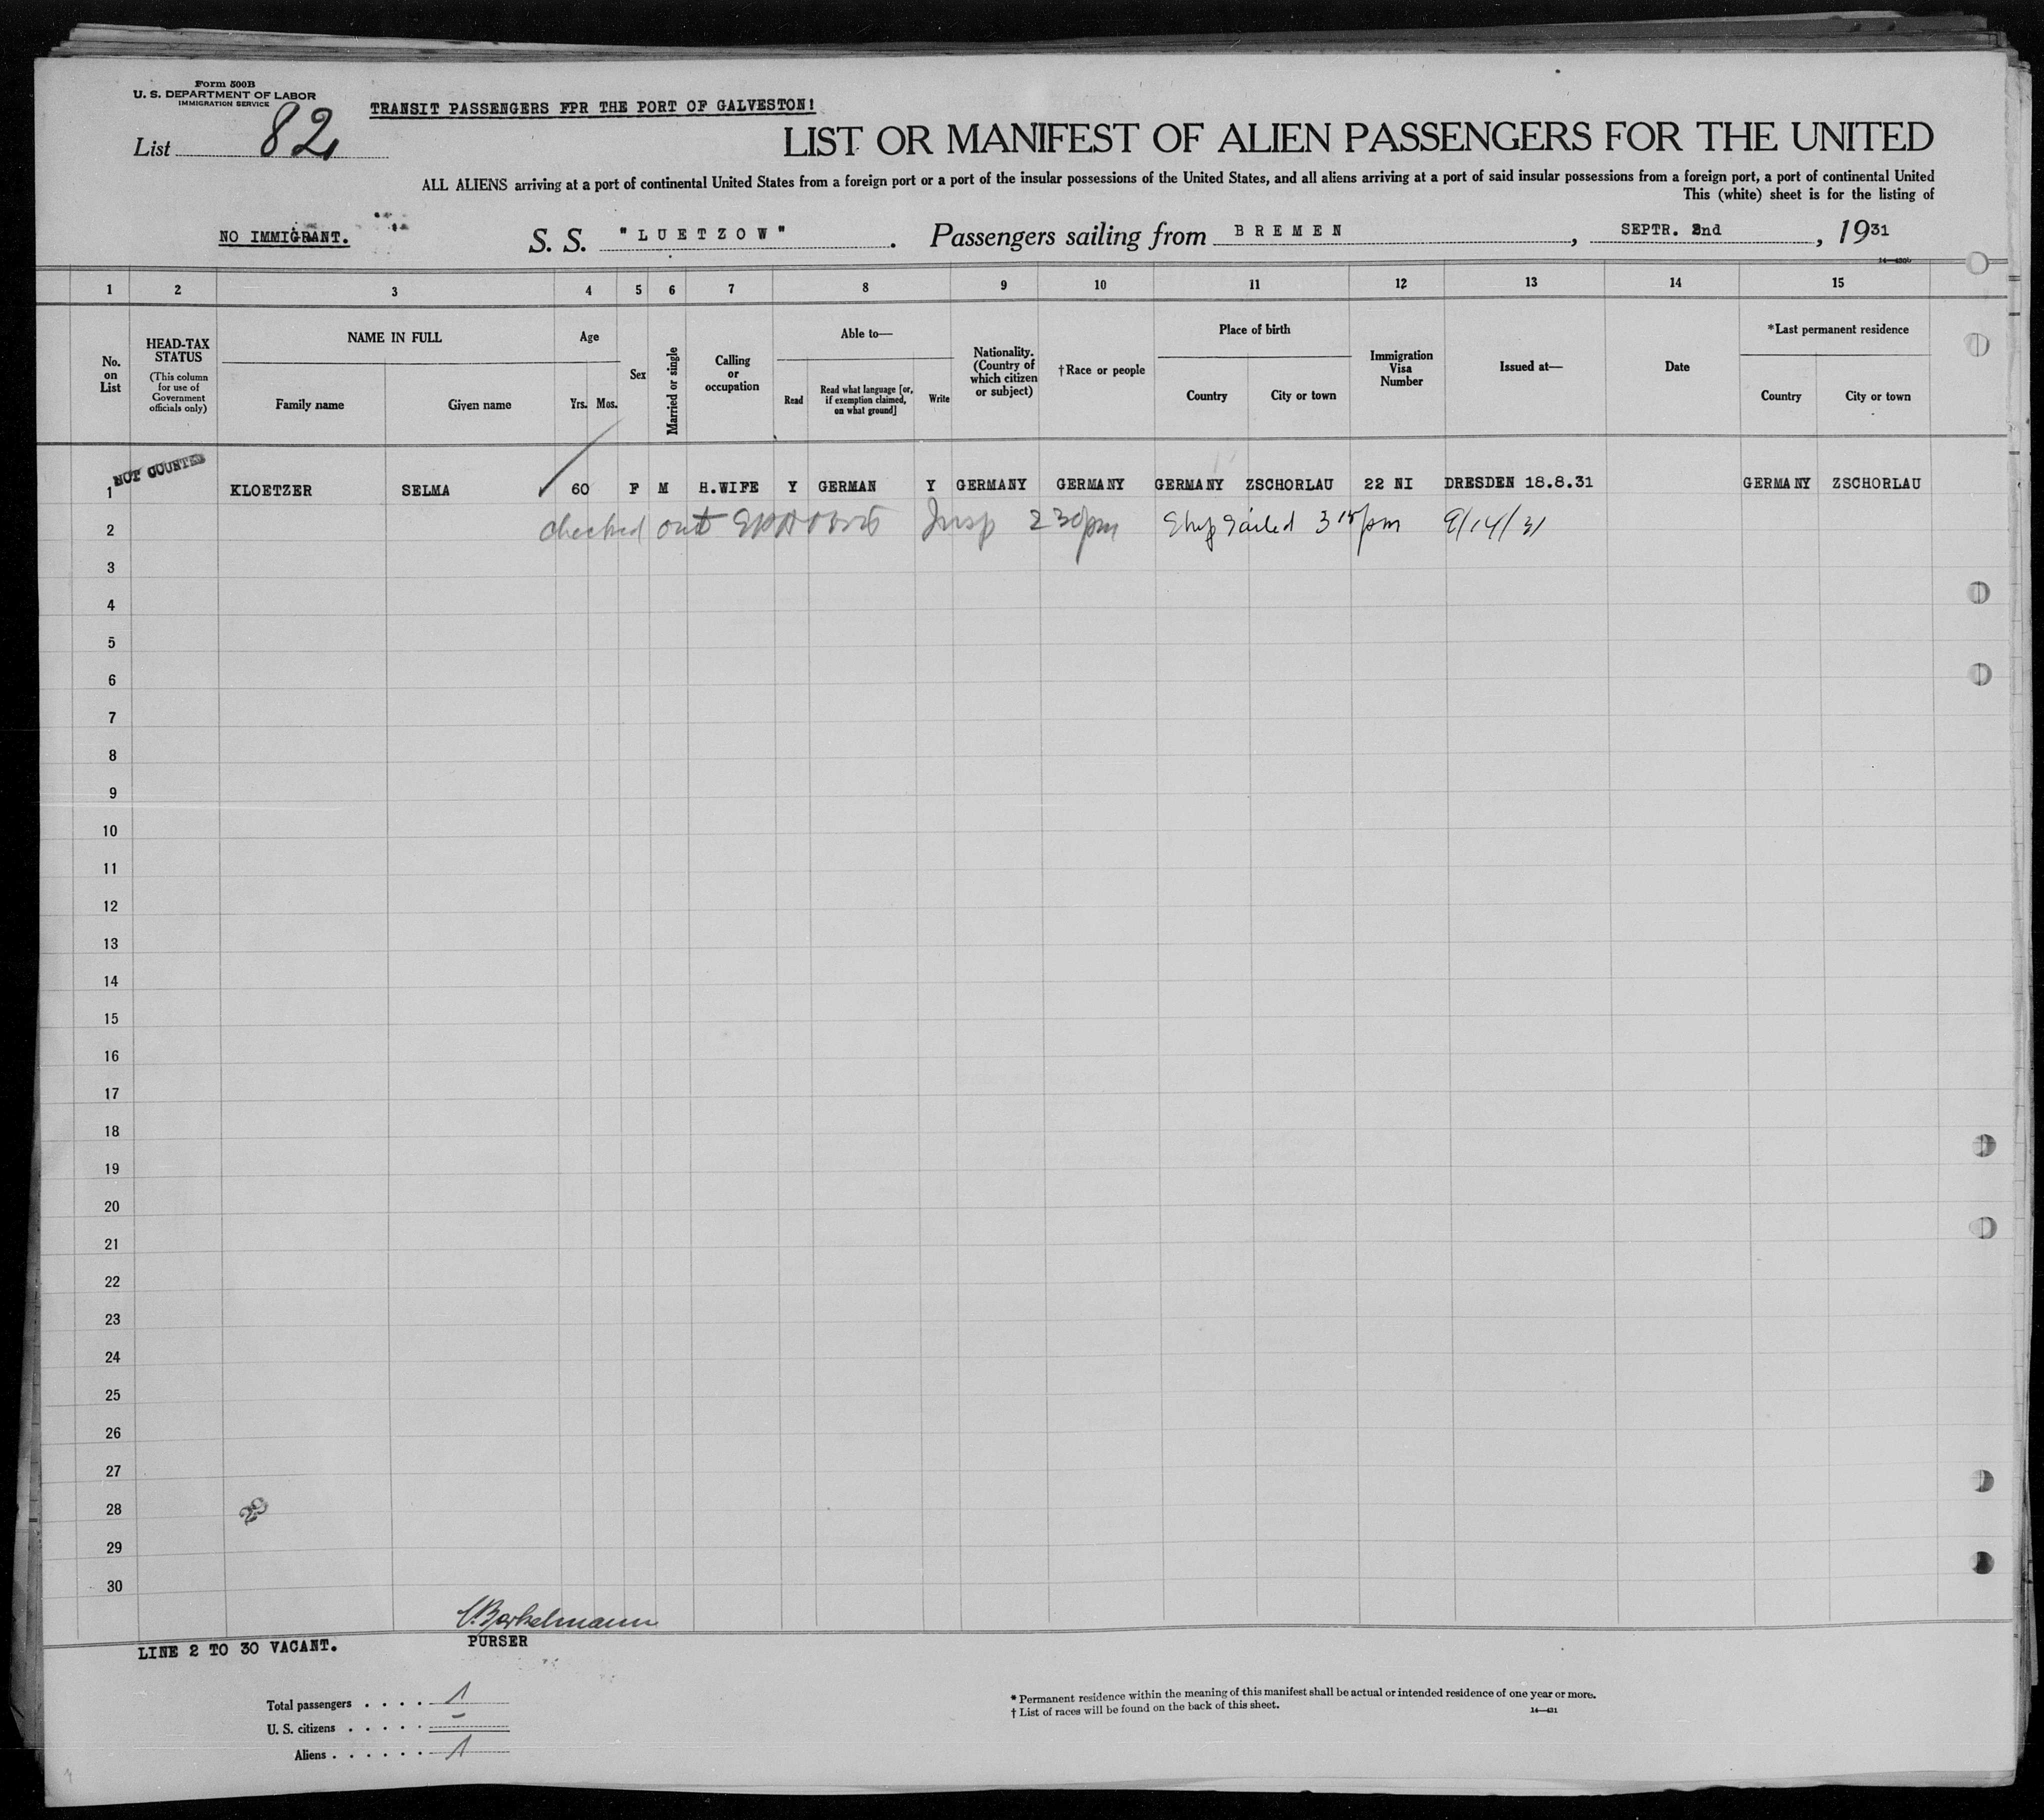 Form 500B
U. S. DEPARTMENT OF LABOR
IMMIGRATION SERVICE
TRANSIT PASSENGERS FPR THE PORT OF GALVESTON!
List 82
LIST OR MANIFEST OF ALIEN PASSENGERS FOR THE UNITED
ALL ALIENS arriving at a port of continental United States from a foreign port or a port of the insular possessions of the United States, and all aliens arriving at a port of said insular possessions from a foreign port, a port of continental United
This (white) sheet is for the listing of
NO IMMIGRANT. S. S. "LUETZOW". Passengers sailing from BREMEN, SEPTR. 2nd, 1931
1 2 3 4 5 6 7 8 9 10 11 12 13 14 15
No. on List
HEAD-TAX STATUS
(This column for use of Government officials only)
NAME IN FULL
Family name Given name
Age
Yrs. Mos.
Sex
Married or single
Calling or occupation
Able to—
Read
Read what language [or, if exemption claimed, on what ground]
Write
Nationality. (Country of which citizen or subject)
†Race or people
Place of birth
Country City or town
Immigration Visa Number
Issued at—
Date
*Last permanent residence
Country City or town
NOT COUNTED
1 KLOETZER SELMA 60 F M H.WIFE Y GERMAN Y GERMANY GERMANY GERMANY ZSCHORLAU 22 NI DRESDEN 18.8.31 GERMANY ZSCHORLAU
2 checked out Insp 230pm Ship Sailed 315pm 9/14/31
3
4
5
6
7
8
9
10
11
12
13
14
15
16
17
18
19
20
21
22
23
24
25
26
27
28
29
30
LINE 2 TO 30 VACANT.
PURSER
Total passengers . . . . 1
U. S. citizens . . . . . –
Aliens . . . . . . 1
* Permanent residence within the meaning of this manifest shall be actual or intended residence of one year or more.
† List of races will be found on the back of this sheet.
14—431